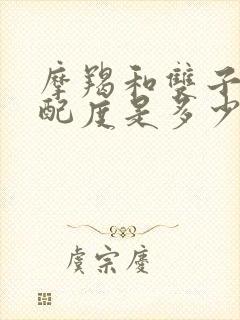 摩羯和雙子
配度是多少
虞宗慶